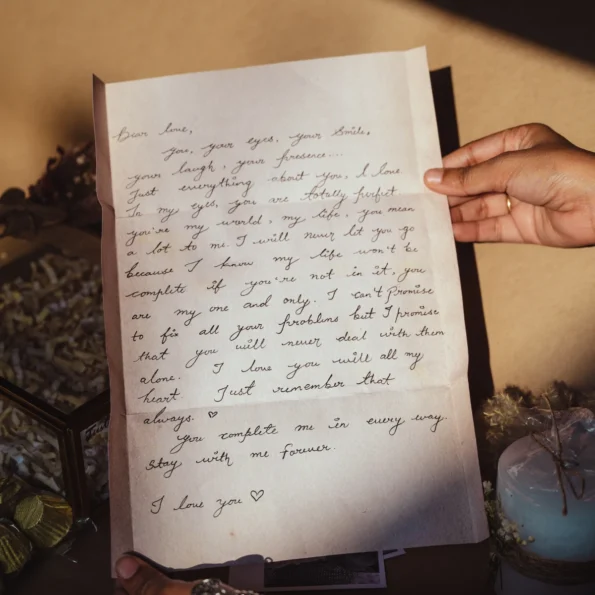 Dear love,
you, your eyes, your Smile,
your laugh, your presence....
Just everything about you, I love.
In my eyes, you are totally perfect
you're my world, my life, you mean
a lot to me. I will never let you go
because I know my life won't be
complete if you're not in it, you
are my one and only. I can't promise
to fix all your problems but I promise
that you will never deal with them
alone. I love you with all my
heart. Just remember that
always. ♡
You complete me in every way.
Stay with me forever.
I love you ♡